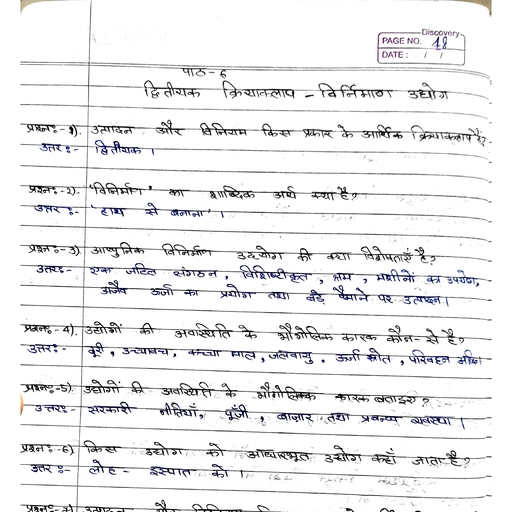 Discovery
PAGE NO. 18
DATE: / /
पाठ-6
द्वितीयक क्रियाकलाप - विर्निमाण उद्योग
प्रश्न:-1). उत्पादन और विनियम किस प्रकार के आर्थिक क्रियाकलाप है?
उत्तर:- द्वितीयक।
प्रश्न:-2). 'विनिर्माण' का शाब्दिक अर्थ क्या है?
उत्तर:- 'हाथ से बनाना'।
प्रश्न:-3) आधुनिक विनिर्माण उद्योग की क्या विशेषताएँ है?
उत्तर:- एक जटिल संगठन, विशिष्टीकृत, श्रम, मशीनों का उपयोग,
अजैव ऊर्जा का प्रयोग तथा बड़े पैमाने पर उत्पादन।
प्रश्न:-4). उद्योगों की अवस्थिति के भौगोलिक कारक कौन-से है?
उत्तर:- दूरी, उच्चावच, कच्चा माल, जलवायु, ऊर्जा स्रोत, परिवहन
प्रश्न:-5) उद्योगों की अवस्थिति के भौगोलिक कारक बताइए?
उत्तर:- सरकारी नीतियाँ, पूँजी, बाज़ार तथा प्रबन्ध व्यवस्था।
प्रश्न:-6) किस उद्योग को आधारभूत उद्योग कहाँ जाता है?
उत्तर:- लोह-इस्पात को।